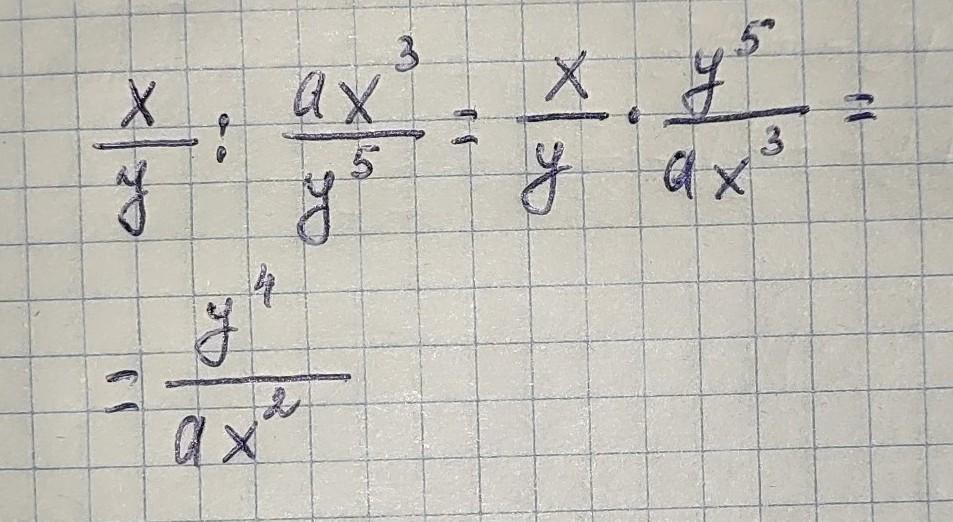 x/y : ax³/y⁵ = x/y · y⁵/ax³ =
= y⁴/ax²